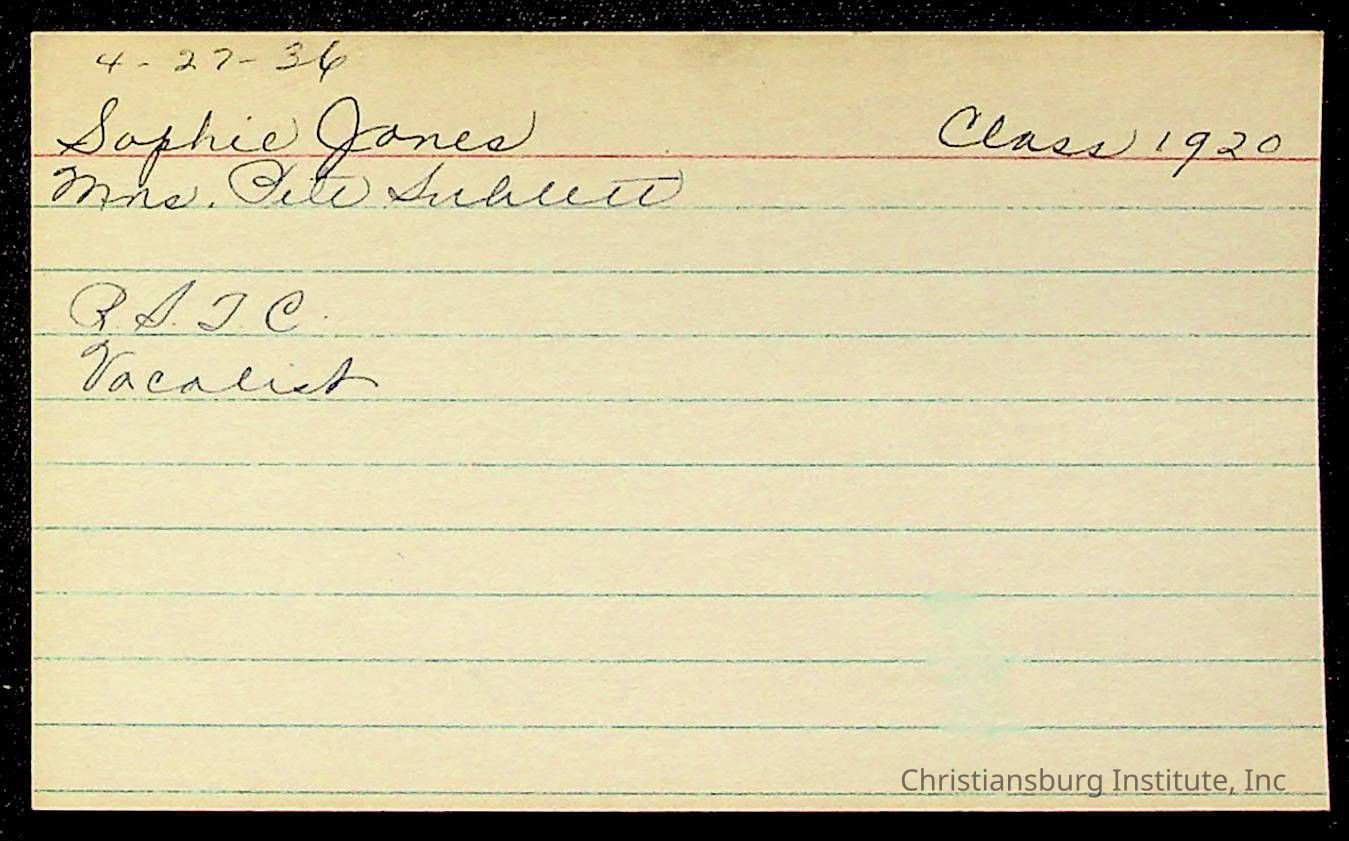 4-27-36
Sophie Jones Class 1920
Mrs. Pete Sublett
R.S.T.C.
Vocalist
Christiansburg Institute, Inc